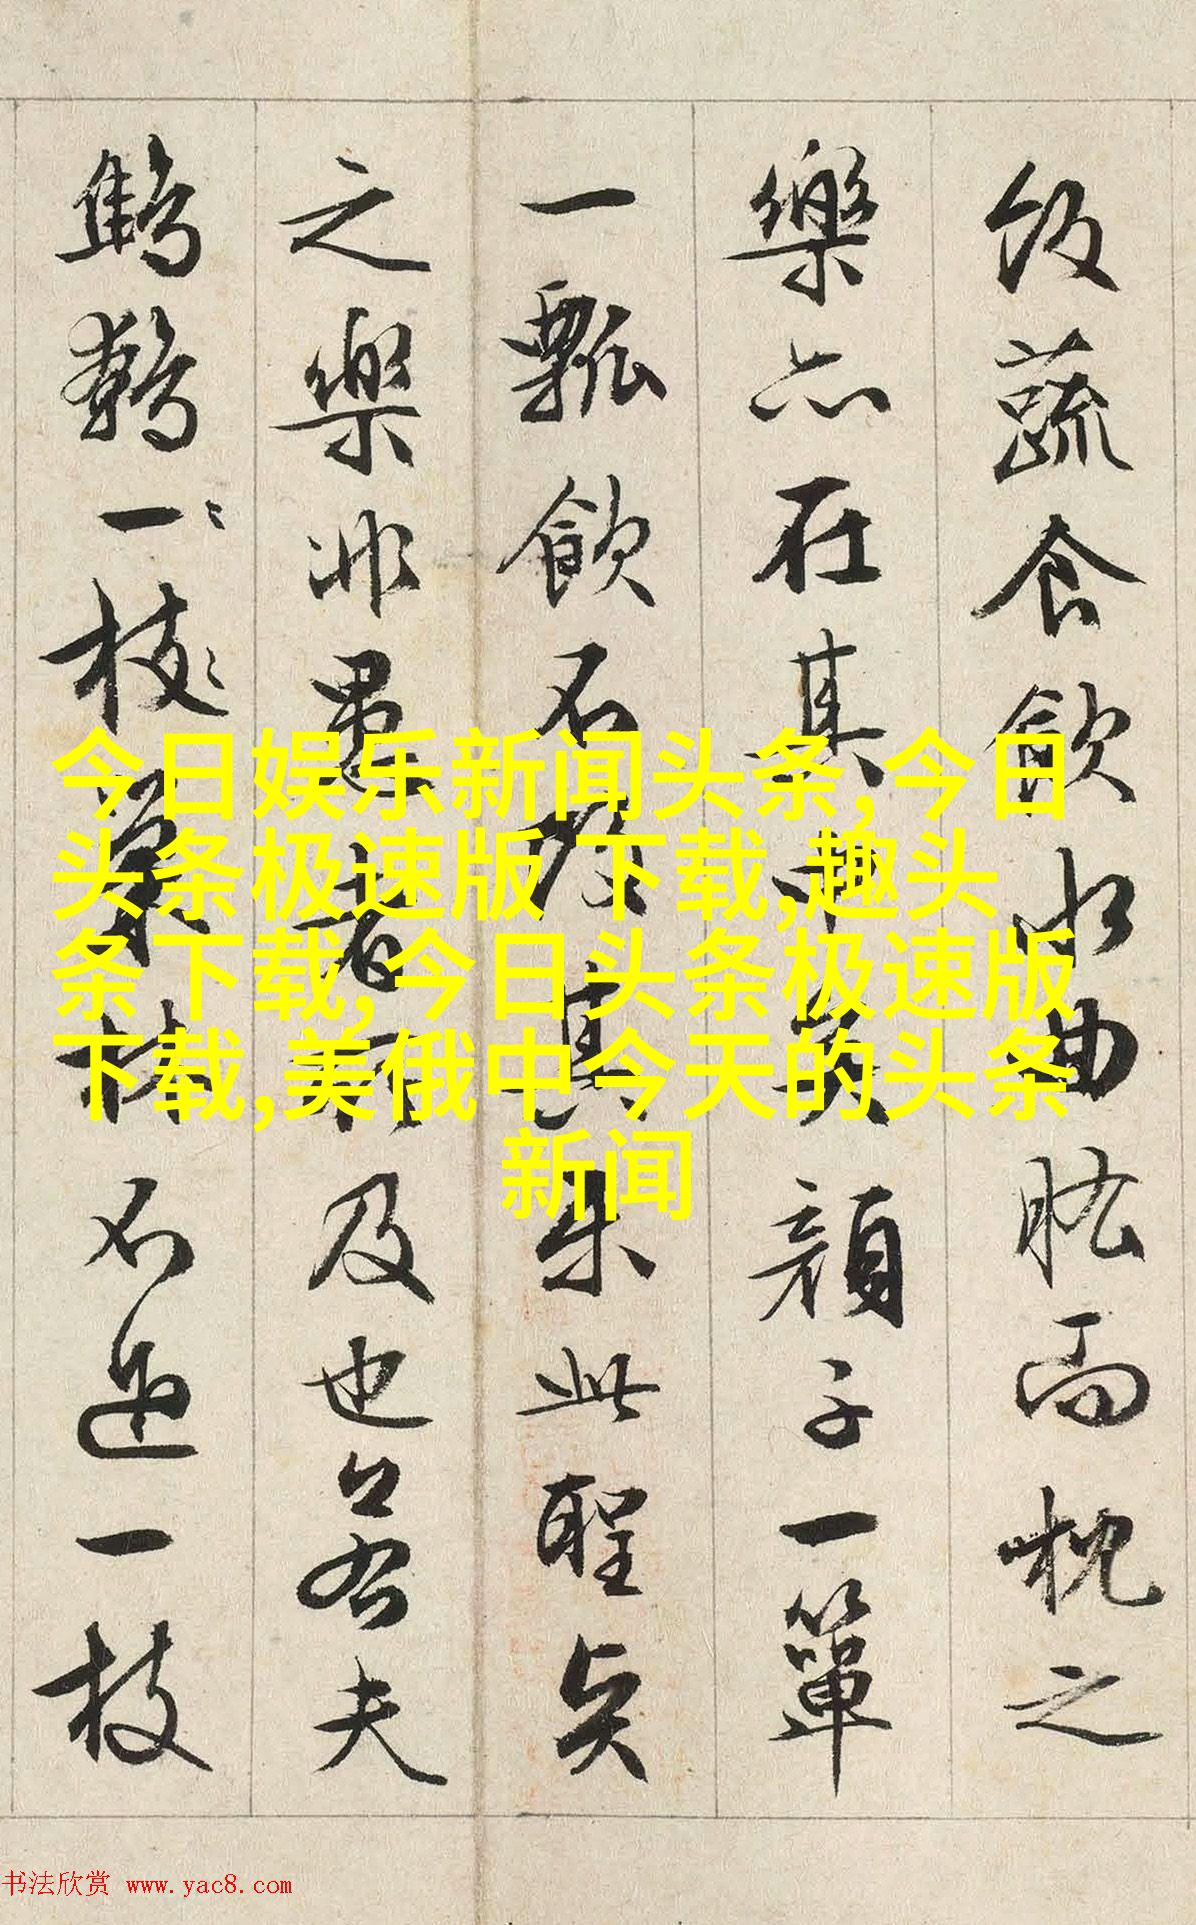 飯蔬食飲水曲肱而枕之
樂亦在其中矣顔子一簞
一瓢飲不改其樂此聖賢
之樂非愚者所及也若夫
鷦鷯一枝巢林不過一枝
今日娱乐新闻头条,今日
头条极速版 下载,趣头
条下载,今日头条极速版
下载,美俄中今天的头条
新闻
书法欣赏 www.yac8.com